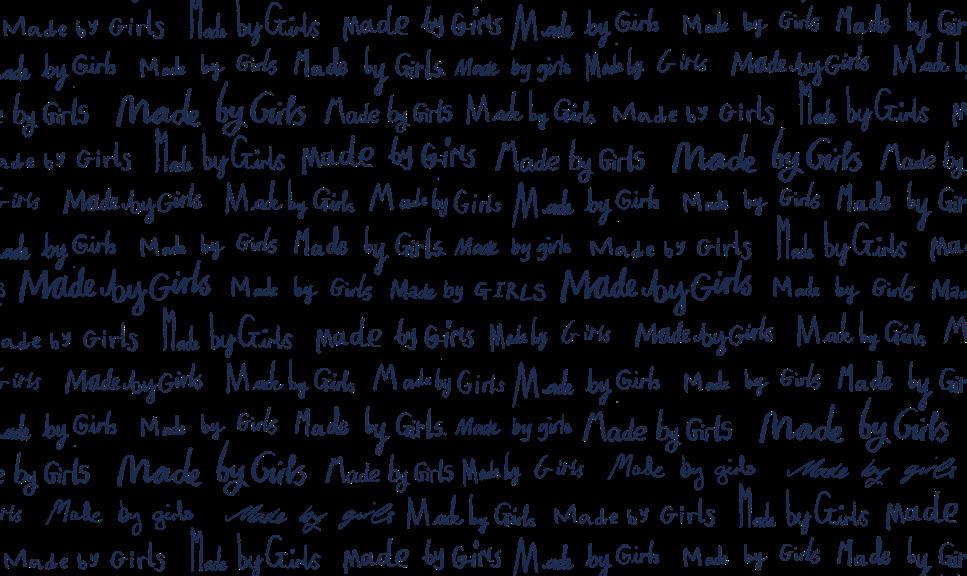 Made by Girls Made by Girls Made by Girls Made by Girls Made by Girls Made by Gir
ade by Girls Made by Girls Made by Girls. Made by girls Made by Girls Made by Girls Made by
e by Girls Made by Girls Made by Girls Made by Girls Made by Girls Made by Girls
ade by Girls Made by Girls Made by Girls Made by Girls Made by Girls Made by
Girls Made by Girls Made by Girls Made by Girls Made by Girls Made by Girls Made by Gir
ade by Girls Made by Girls Made by Girls. Made by girls Made by Girls Made by Girls Mad
s Made by Girls Made by Girls Made by GIRLS Made by Girls Made by Girls Ma
ade by Girls Made by Girls Made by Girls Made by Girls Made by Girls Made by Girls M
Girls Made by Girls Made by Girls Made by Girls Made by Girls Made by Girls Made by Gir
ade by Girls Made by Girls Made by Girls. Made by girls Made by Girls Made by Girls
e by Girls Made by Girls Made by Girls Made by Girls Made by girls Made by girls
rls Made by girls Made by girls Made by Girls Made by Girls Made by Girls Made
Made by Girls Made by Girls Made by Girls Made by Girls Made by Girls Made by Gir